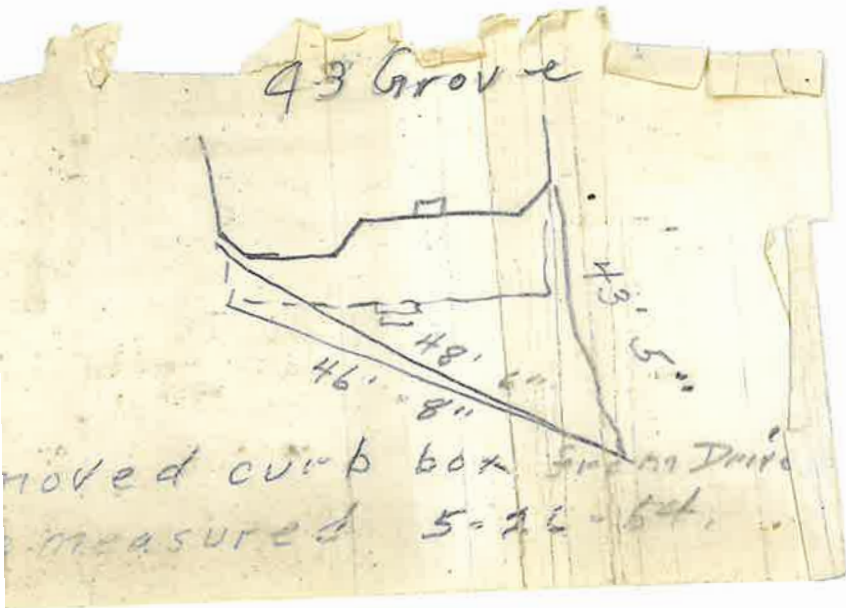 43 Grove
43' 5"
48' 6"
46' 8"
moved curb box from Drive
measured 5-26-54.